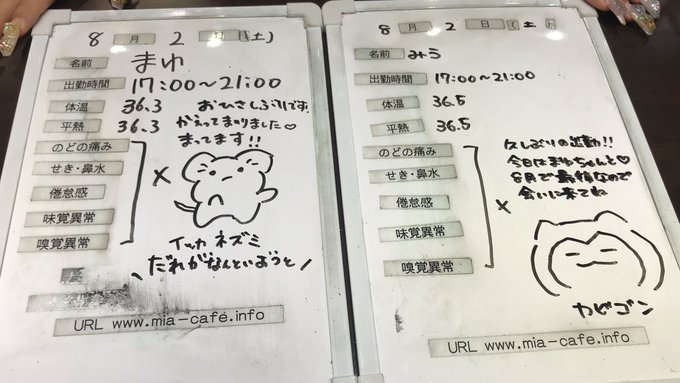 8 月 2 日 (土)
名前 まゆ
出勤時間 17:00~21:00
体温 36.3
平熱 36.3
おひさしぶりです。
かえってまいりました♡
まってます!!
のどの痛み
せき・鼻水
倦怠感
味覚異常
嗅覚異常
×
イッカ ネズミ
\だれがなんといおうと/
URL www.mia-cafe.info
8 月 2 日 (土)
名前 みうら
出勤時間 17:00~21:00
体温 36.5
平熱 36.5
のどの痛み
せき・鼻水
倦怠感
味覚異常
嗅覚異常
×
久しぶりの出勤!!
今日はまゆちゃんと♡
8月で最後なので
会いに来てね
カビゴン
URL www.mia-cafe.info